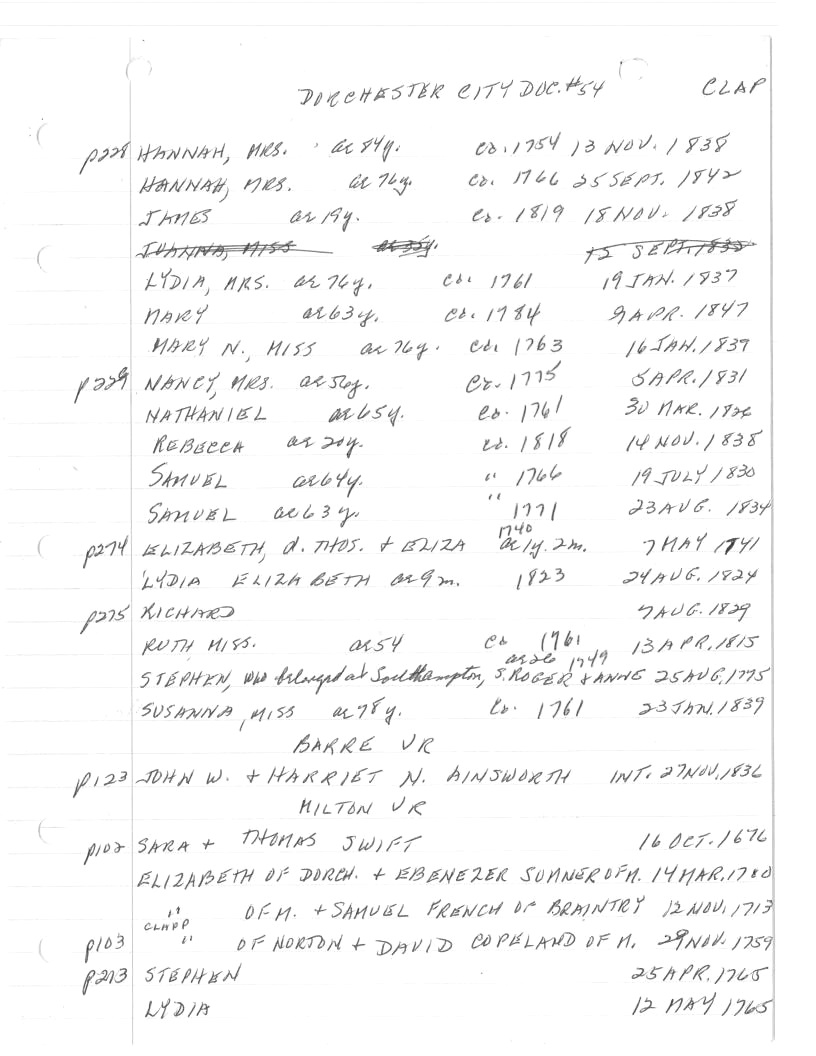 DORCHESTER CITY DOC. #54 CLAP
p228 HANNAH, MRS. ae 84y. cb. 1754 13 NOV. 1838
HANNAH, MRS. ae 76y. cb. 1766 25 SEPT. 1842
JAMES ae 19y. cb. 1819 18 NOV. 1838
JOANNA, MISS ae 35y. 12 SEPT. 1832
LYDIA, MRS. ae 76y. cb. 1761 19 JAN. 1837
MARY ae 63y. cb. 1784 9 APR. 1847
MARY N., MISS ae 76y. cb. 1763 16 JAN. 1839
p229 NANCY, MRS. ae 56y. cb. 1775 5 APR. 1831
NATHANIEL ae 65y. cb. 1761 30 MAR. 1826
REBECCA ae 20y. cb. 1818 14 NOV. 1838
SAMUEL ae 64y. " 1766 19 JULY 1830
SAMUEL ae 63y. " 1771 23 AUG. 1834
1740
p274 ELIZABETH, d. THOS. + ELIZA ae 1y. 2m. 7 MAY 1741
LYDIA ELIZABETH ae 9m. 1823 24 AUG. 1824
p275 RICHARD 7 AUG. 1829
RUTH MISS. ae 54 cb 1761 13 APR. 1815
ae 26 1749
STEPHEN, who belonged at Southampton, S. ROGER + ANNE 25 AUG. 1775
SUSANNA, MISS ae 78y. cb. 1761 23 JAN. 1839
BARRE VR
p123 JOHN W. + HARRIET N. AINSWORTH INT. 27 NOV. 1836
MILTON VR
p102 SARA + THOMAS SWIFT 16 OCT. 1676
ELIZABETH OF DORCH. + EBENEZER SUMNER OF M. 14 MAR. 1700
" OF M. + SAMUEL FRENCH OF BRAINTRY 12 NOV. 1713
CLAPP
p103 " OF NORTON + DAVID COPELAND OF M. 29 NOV. 1759
p213 STEPHEN 25 APR. 1765
LYDIA 12 MAY 1765